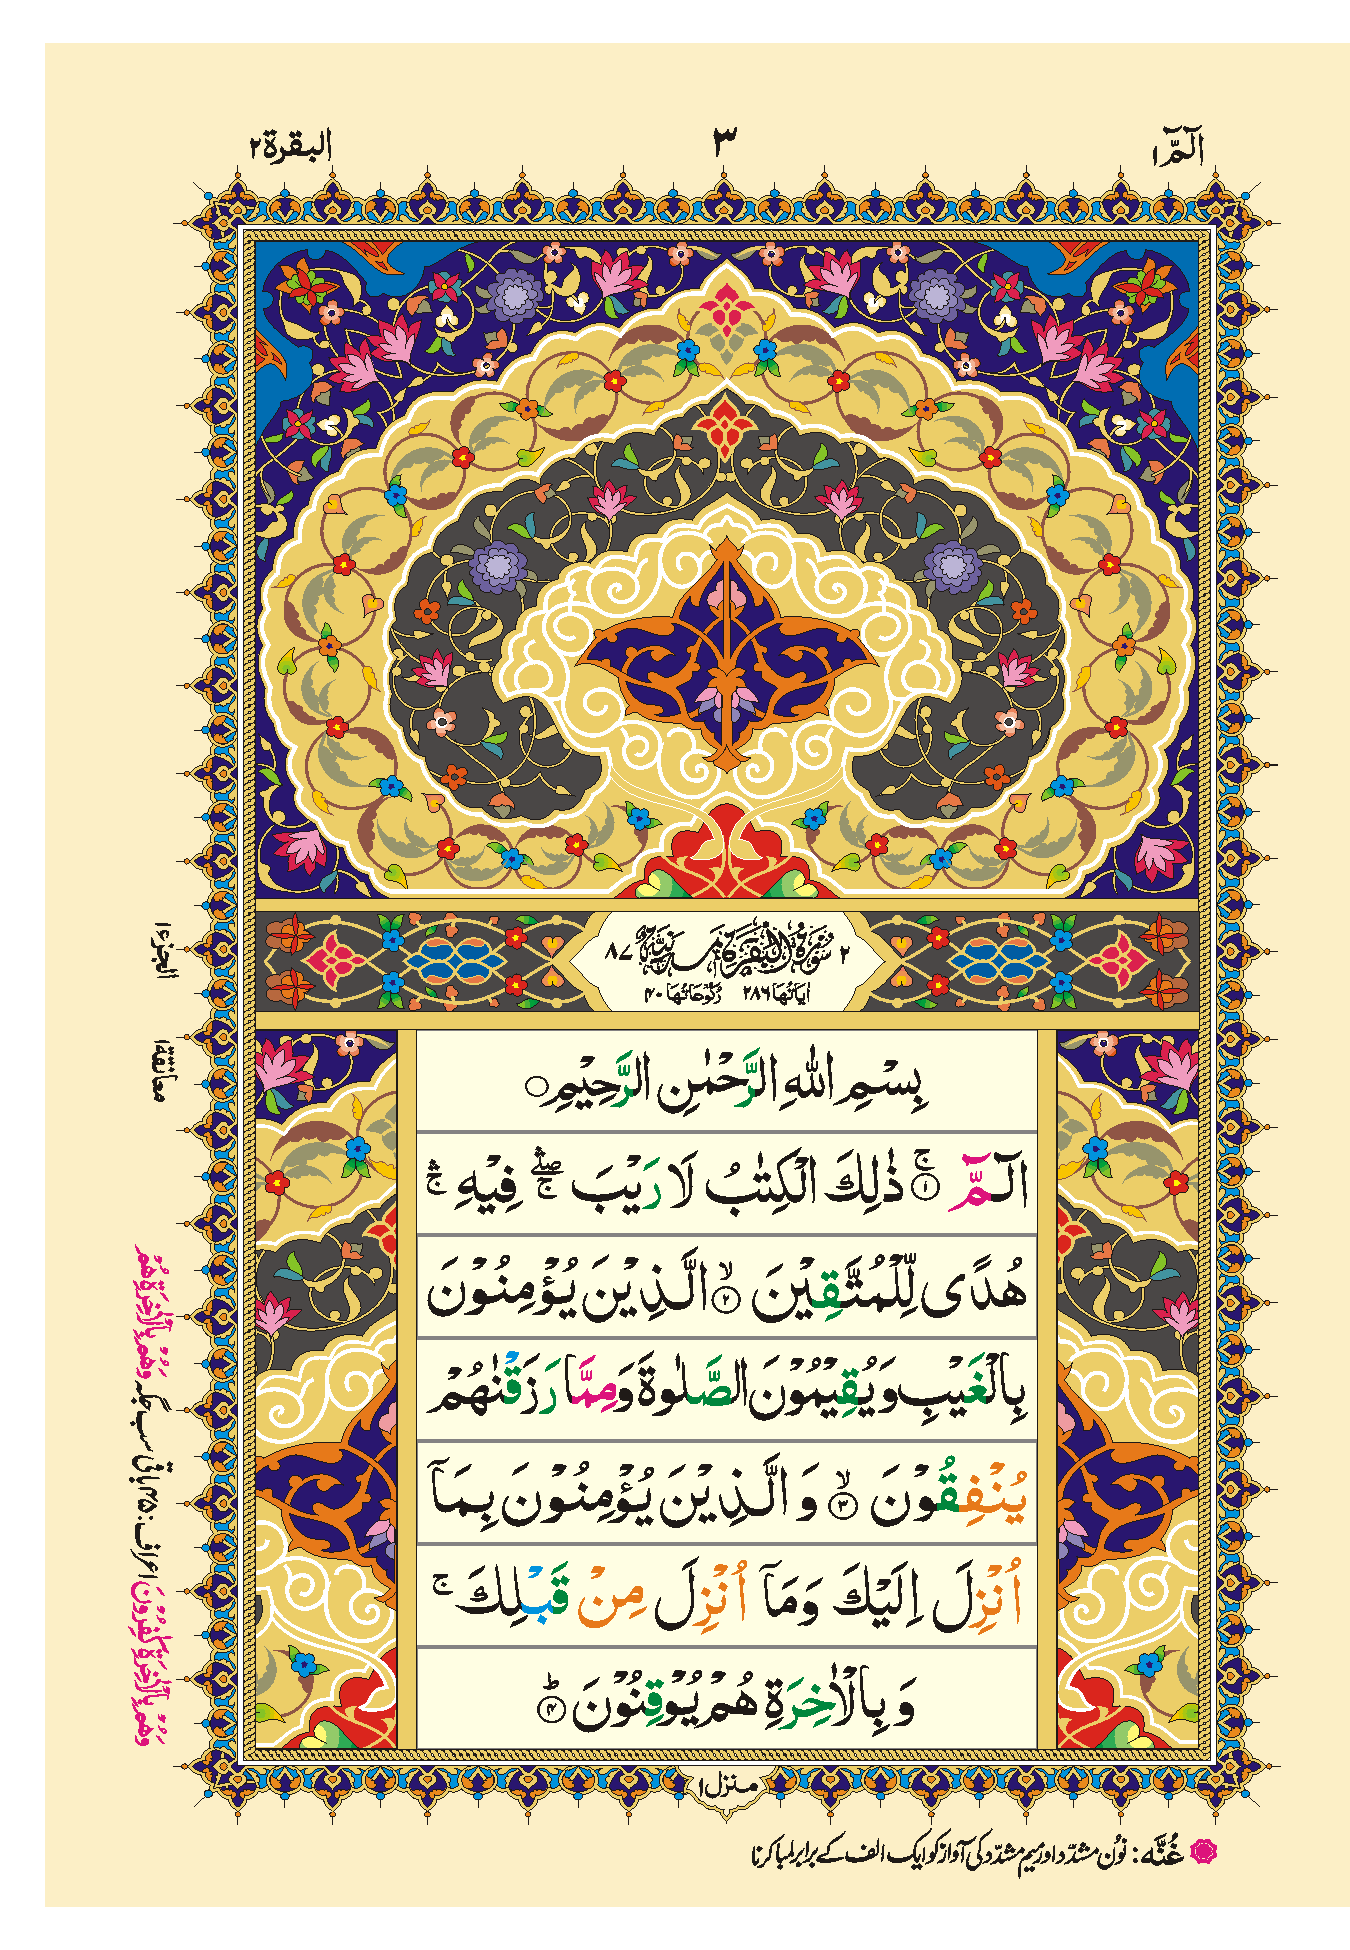 الٓمّٓ ١
٣
البقرة ٢
٢ سُوْرَةُ الْبَقَرَةِ مَدَنِيَّةٌ ٨٧
اٰيَاتُهَا ٢٨٦ رُكُوْعَاتُهَا ٤٠
بِسْمِ اللّٰهِ الرَّحْمٰنِ الرَّحِيْمِ ○
الٓمّٓ ۚ﴿١﴾ ذٰلِكَ الْكِتٰبُ لَا رَيْبَ ۛۖۚ فِيْهِ ۛۚ
هُدًى لِّلْمُتَّقِيْنَ ۙ﴿٢﴾ الَّذِيْنَ يُؤْمِنُوْنَ
بِالْغَيْبِ وَيُقِيْمُوْنَ الصَّلٰوةَ وَمِمَّا رَزَقْنٰهُمْ
يُنْفِقُوْنَ ۙ﴿٣﴾ وَالَّذِيْنَ يُؤْمِنُوْنَ بِمَآ
اُنْزِلَ اِلَيْكَ وَمَآ اُنْزِلَ مِنْ قَبْلِكَ ۚ
وَبِالْاٰخِرَةِ هُمْ يُوْقِنُوْنَ ؕ﴿٤﴾
منزل ١
الجزء ١
معانقة ١
وَهُمْ بِالْاٰخِرَةِ كٰفِرُوْنَ اعراف : ٤٥ باقی سب جگہ وَهُمْ بِالْاٰخِرَةِ هُمْ
غُنَّه : نُون مشدّد اور میم مشدّد کی آواز کو ایک الف کے برابر لمبا کرنا